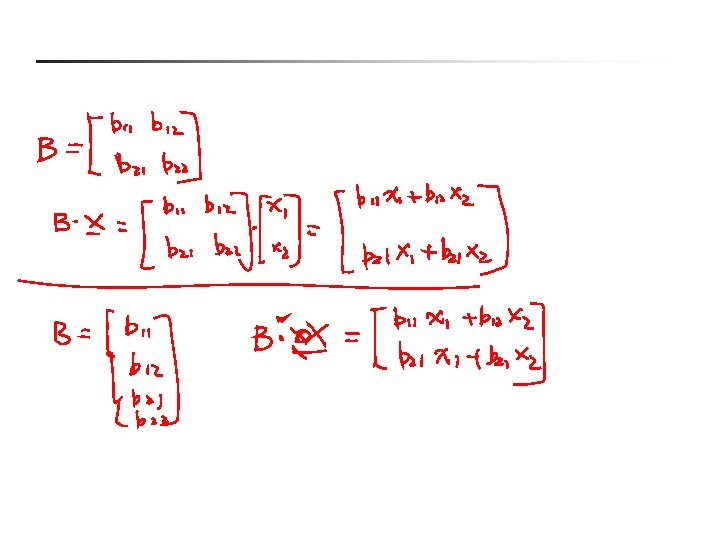 B = [ b11 b12
b21 b22 ]
B · X = [ b11 b12
b21 b22 ] · [ x1
x2 ] = [ b11 x1 + b12 x2
b21 x1 + b21 x2 ]
B = [ b11
b12
b21
b22 ]
B · X = [ b11 x1 + b12 x2
b21 x1 + b21 x2 ]